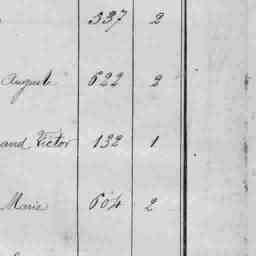 337 2
Auguste 622 2
and Victor 132 1
Marie 604 2